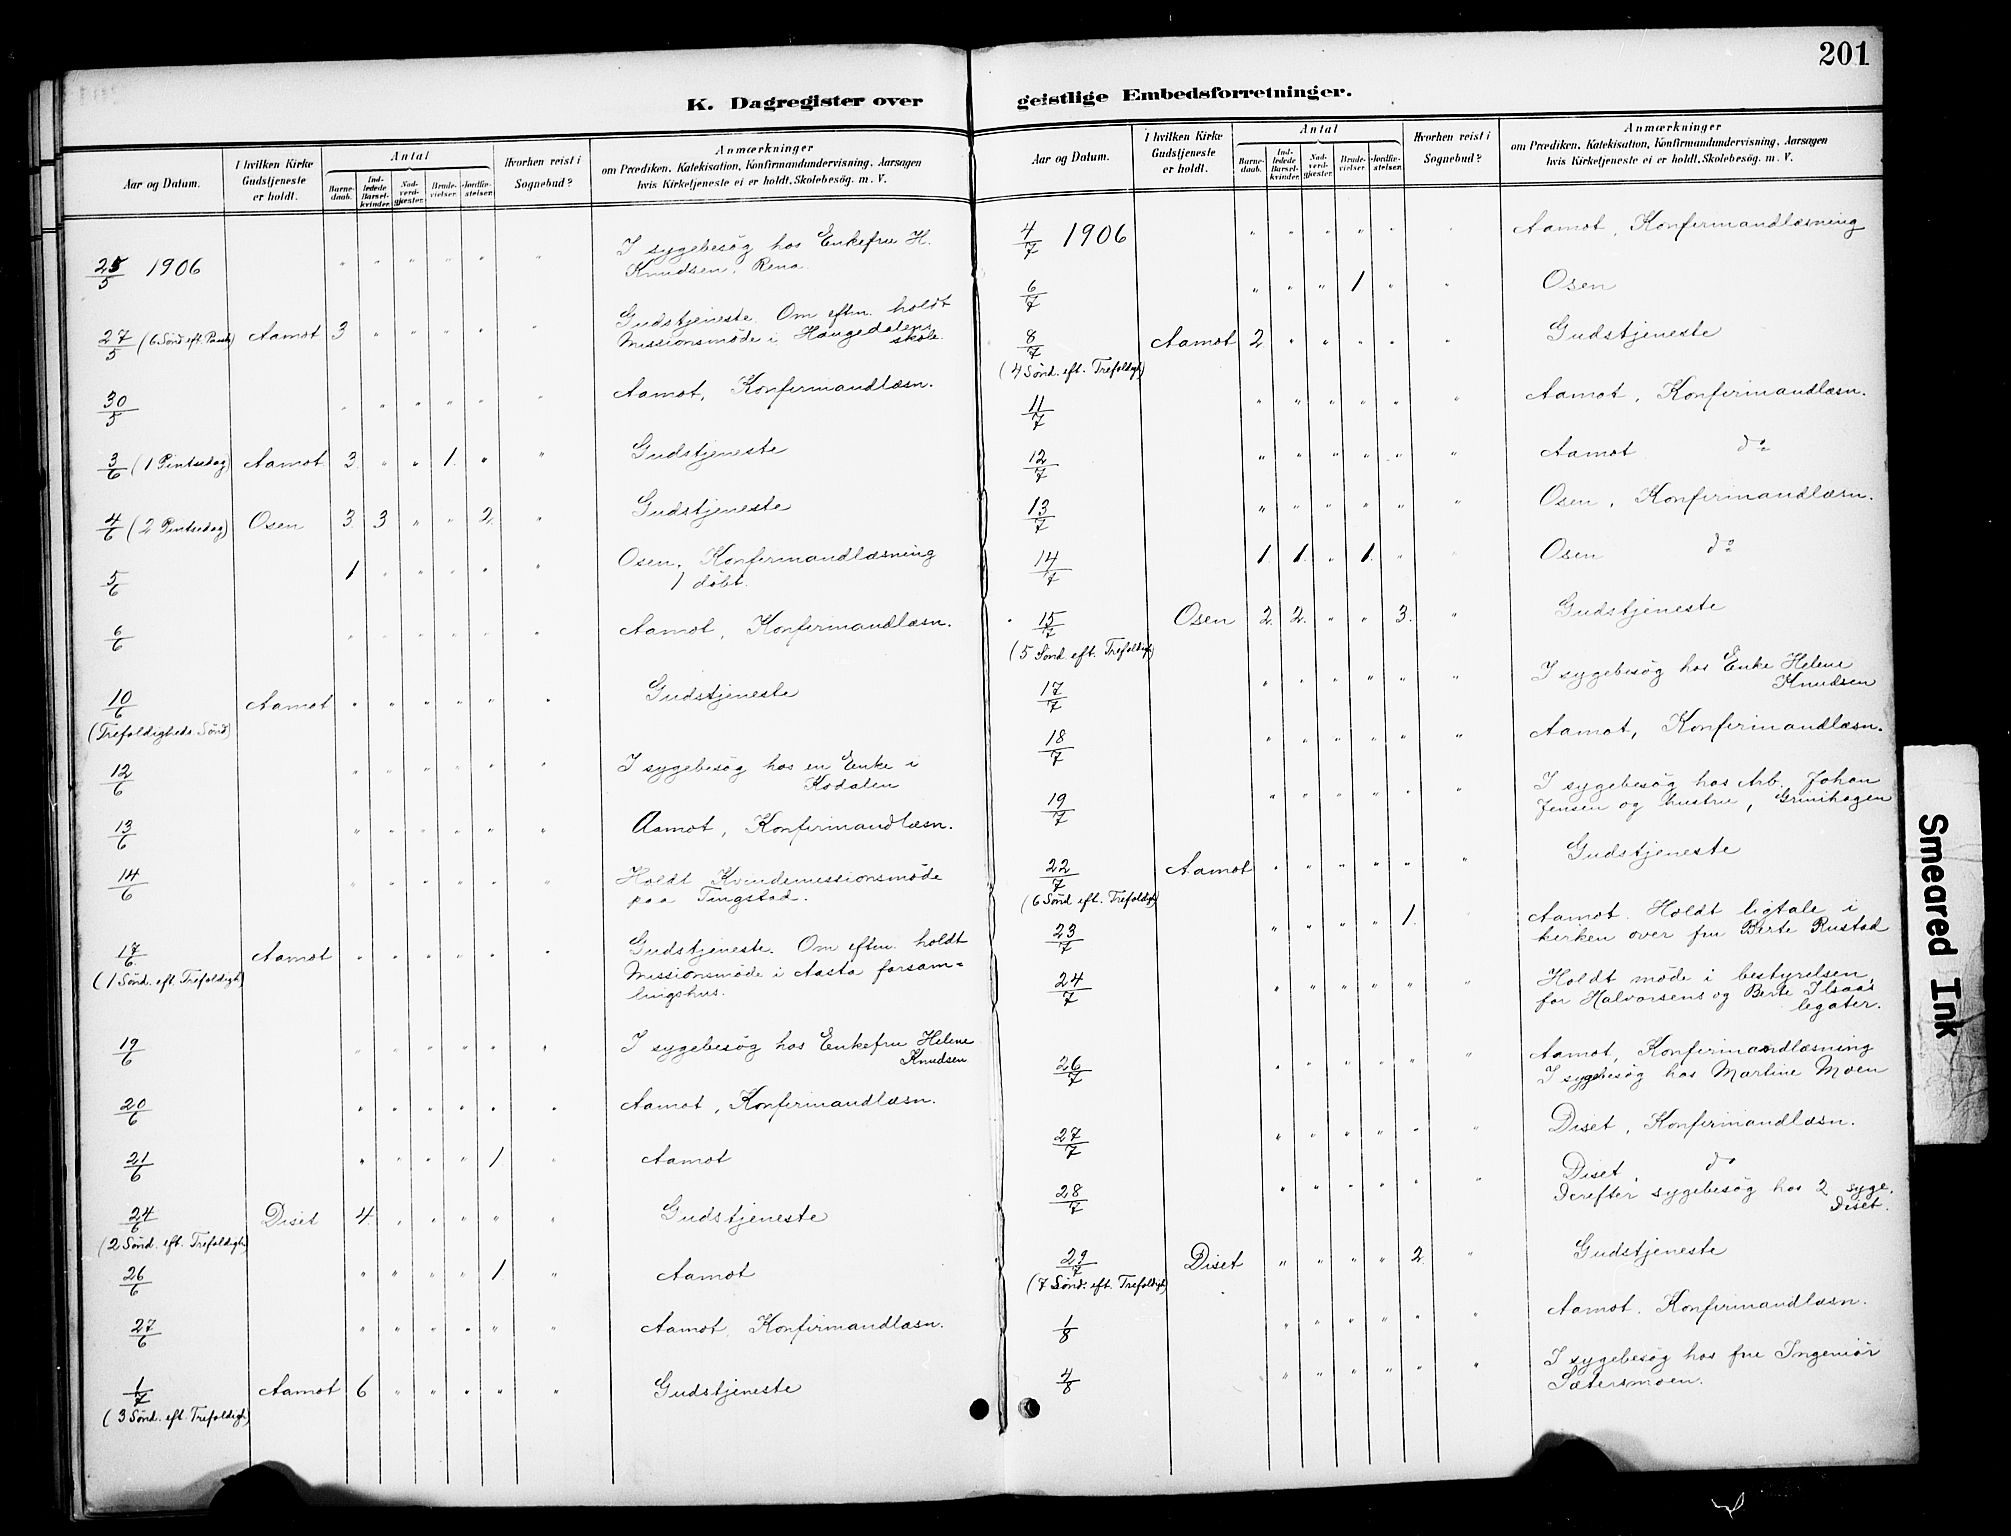 201
K. Dagregister over geistlige Embedsforretninger.
Aar og Datum. | I hvilken Kirke Gudstjeneste er holdt. | Antal | Barne-daab. | Ind-ledede Barsel-kvinder. | Nad-verd-gjæster. | Brude-vielser. | Jordfæ-stelser. | Hvorhen reist i Sognebud? | Anmærkninger om Prædiken, Katekisation, Konfirmandundervisning, Aarsagen hvis Kirketjeneste ei er holdt, Skolebesøg. m. V.
25/5 1906 | " | " | " | " | " | " | I sygebesøg hos Enkefru H.
Knudsen, Rena.
27/5 (6 Sønd eft. Paask) | Aamot | 3 | " | " | " | " | " | Gudstjeneste. Om eftm. holdt
Missionsmøde i Haugedalens
skole.
30/5 | " | " | " | " | " | " | Aamot, Konfirmandlæsn.
3/6 (1 Pintsedag) | Aamot | 3. | " | " | 1. | " | " | Gudstjeneste
4/6 (2 Pintsedag) | Osen | 3. | 3 | " | " | 2. | " | Gudstjeneste
5/6 | 1 | " | " | " | " | " | Osen. Konfirmandlæsning
1 døbt.
6/6 | " | " | " | " | " | " | Aamot, Konfirmandlæsn.
10/6 | Aamot | " | " | " | " | " | " | Gudstjeneste
(Trefoldigheds Sønd)
12/6 | " | " | " | " | " | " | I sygebesøg hos en Enke i
Kodalen
13/6 | " | " | " | " | " | " | Aamot, Konfirmandlæsn.
14/6 | " | " | " | " | " | " | Holdt Kvindemissionsmøde
paa Tingstad.
17/6 | Aamot | " | " | " | " | " | " | Gudstjeneste. Om eftm. holdt
(1 Sønd. eft. Trefoldigh.) Missionsmøde i Aasta forsam=
lingshus.
19/6 | " | " | " | " | " | " | I sygebesøg hos Enkefru Helene
Knudsen
20/6 | " | " | " | " | " | " | Aamot, Konfirmandlæsn.
21/6 | " | " | " | " | 1 | " | Aamot
24/6 | Diset | 4. | " | " | " | " | " | Gudstjeneste
(2 Sønd. eft. Trefoldigh.)
26/6 | " | " | " | " | 1 | " | Aamot
27/6 | " | " | " | " | " | " | Aamot, Konfirmandlæsn.
1/7 | Aamot | 6 | " | " | " | " | " | Gudstjeneste
(3 Sønd. eft. Trefoldigh.)
Aar og Datum. | I hvilken Kirke Gudstjeneste er holdt. | Antal | Barne-daab. | Ind-ledede Barsel-kvinder. | Nad-verd-gjæster. | Brude-vielser. | Jordfæ-stelser. | Hvorhen reist i Sognebud? | Anmærkninger om Prædiken, Katekisation, Konfirmandundervisning, Aarsagen hvis Kirketjeneste ei er holdt, Skolebesøg. m. V.
4/7 1906 | " | " | " | " | " | " | Aamot, Konfirmandlæsning
6/7 | " | " | " | 1 | " | " | Osen
8/7 | Aamot | 2. | " | " | " | " | " | Gudstjeneste
(4 Sønd. eft. Trefoldigh)
11/7 | " | " | " | " | " | " | Aamot, Konfirmandlæsn.
12/7 | " | " | " | " | " | " | Aamot do
13/7 | " | " | " | " | " | " | Osen, Konfirmandlæsn.
14/7 | 1. | 1. | " | 1. | " | " | Osen do
15/7 | Osen | 2. | 2. | " | " | 3. | " | Gudstjeneste
(5 Sønd. eft. Trefoldigh)
17/7 | " | " | " | " | " | " | I sygebesøg hos Enke Helene
Knudsen
18/7 | " | " | " | " | " | " | Aamot, Konfirmandlæsn.
19/7 | " | " | " | " | " | " | I sygebesøg hos Arb. Johan
Jensen og hustru, Grinihagen
22/7 | Aamot | " | " | " | " | " | " | Gudstjeneste
(6 Sønd. eft. Trefoldigh)
23/7 | " | " | " | " | 1. | " | Aamot. Holdt ligtale i
kirken over fru Berte Rustad
24/7 | " | " | " | " | " | " | Holdt møde i bestyrelsen
for Halvorsens og Berte Ilsaas
legater.
26/7 | " | " | " | " | " | " | Aamot, Konfirmandlæsning
I sygebesøg hos Martine Moen
27/7 | " | " | " | " | " | " | Diset, Konfirmandlæsn.
28/7 | " | " | " | " | " | " | Diset, do
Derefter sygebesøg hos 2 syge,
Diset.
29/7 | Diset | " | " | " | " | 2. | " | Gudstjeneste
(7 Sønd. eft. Trefoldigh)
1/8 | " | " | " | " | " | " | Aamot. Konfirmandlæsn.
4/8 | " | " | " | " | " | " | I sygebesøg hos fru Ingeniør
Sætersmoen.
Smeared Ink